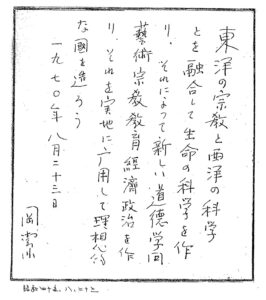 東洋の宗教と西洋の科学
とを融合して生命の科学を作
り、それによって新しい道徳学問
藝術宗教教育経済政治を作
り、それを実地に応用して理想的
な國を造ろう
一九七〇年八月二十三日
岡
昭和四十五、八、二十三